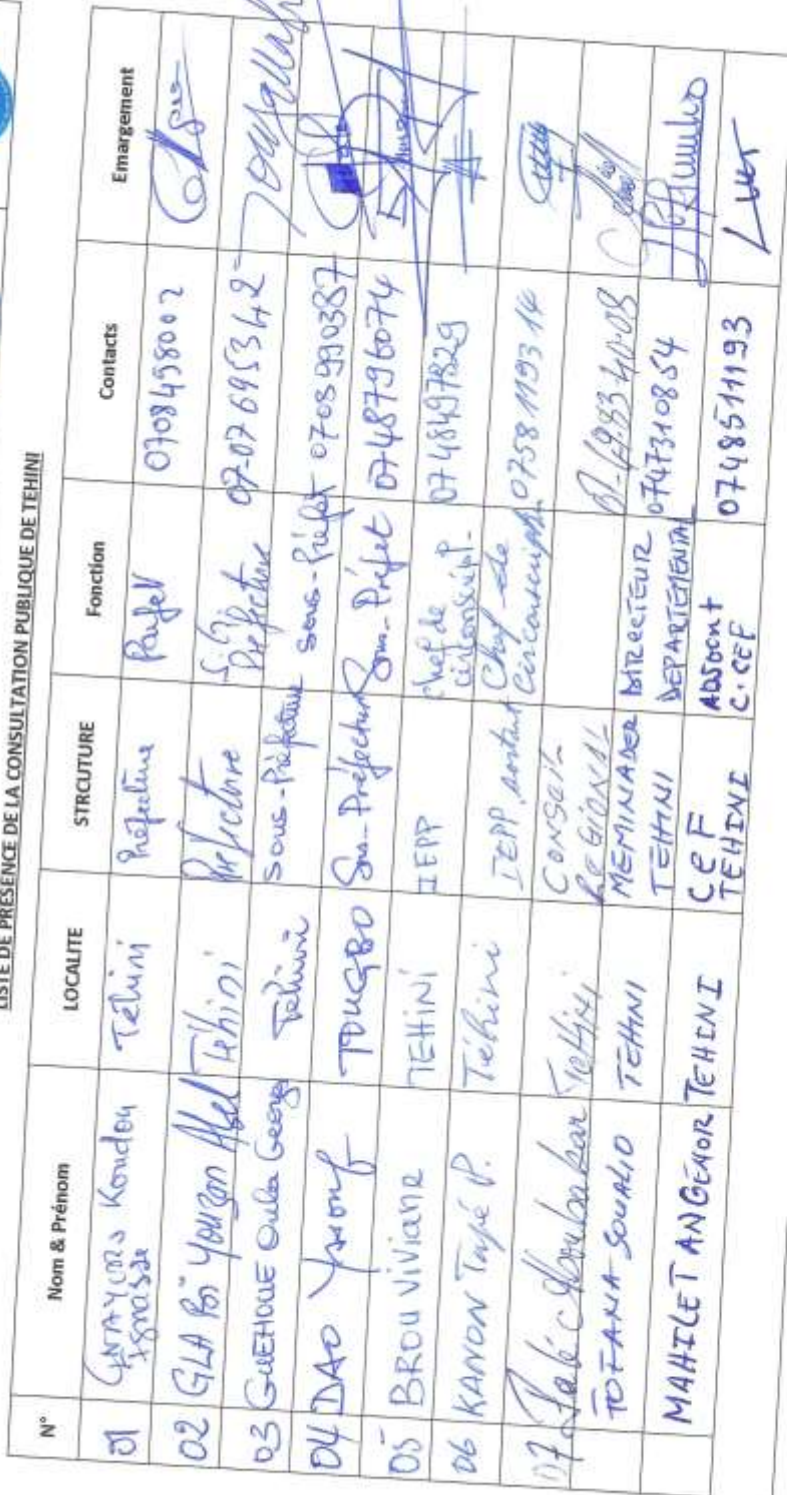 LISTE DE PRESENCE DE LA CONSULTATION PUBLIQUE DE TEHINI
N° Nom & Prénom LOCALITE STRCUTURE Fonction Contacts Emargement
01 Kondou Tehini Préfecture 0708498002
02 GLA Boï Youzan Abel Téhini Préfecture S.G Préfecture 07-07695342
03 GUEHOUE Oula George Tehini Sous-Préfecture Sous-Préfet 0708990387
04 DAO Yssouf TOUGBO Sous-Préfecture Sous-Préfet 0748796074
05 BROU Viviane TEHINI IEPP Chef de circonscript. 0748497829
06 KANON Tapé P. Téhini IEPP sortant Chef de Circonscript. 0758119314
07 Aboubakar Tehini CONSEIL REGIONAL
TOFANA SOUALIO TEHINI MEMINADER TEHINI DIRECTEUR DEPARTEMENTAL 0747310854
MAHILET ANGENOR TEHINI CEF TEHINI ADJOINT C.CEF 0748511193